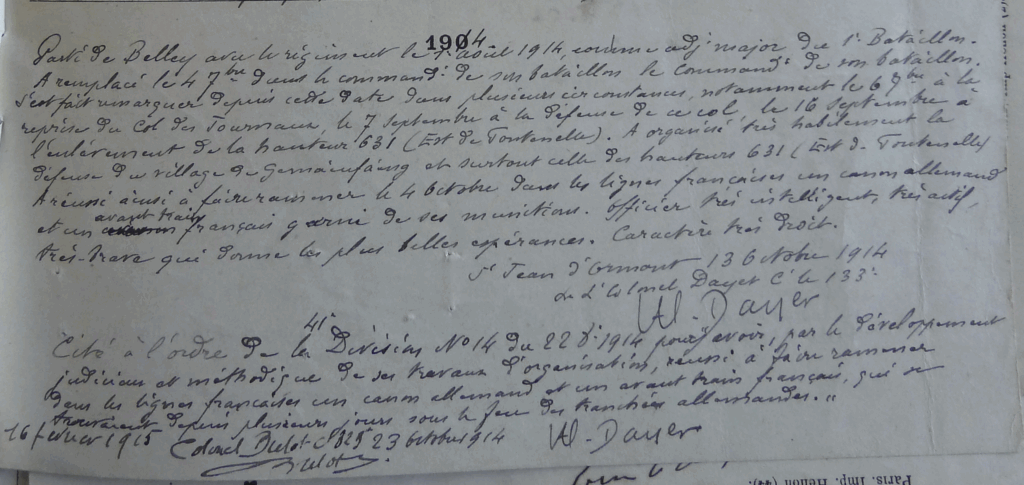 1904
Parti de Belley avec le régiment le 7 août 1914, comme adj. major du 1er Bataillon.
A remplacé le 4 7bre dans le commandt de son bataillon le Commandt de son bataillon.
S'est fait remarquer depuis cette date dans plusieurs circonstances, notamment le 6 7bre à la
reprise du Col des Journaux, le 7 septembre à la défense de ce col, le 16 septembre à
l'enlèvement de la hauteur 631 (Est de Fontenelle). A organisé très habilement la
défense du village de Gemainfaing et surtout celle des hauteurs 631 (Est de Fontenelle)
A réussi ainsi à faire ramener le 4 Octobre dans les lignes françaises un canon allemand
et un avant train français garni de ses munitions. Officier très intelligent, très actif,
très brave qui donne les plus belles espérances. Caractère très droit.
St Jean d'Ormont 13 Octobre 1914
Le Lt Colonel Dayet Ct le 133e
Al. Dayer
41e
Cité à l'ordre de la Division No 14 du 22 8e 1914 pour "avoir, par le développement
judicieux et méthodique de ses travaux d'organisation, réussi à faire ramener
dans les lignes françaises un canon allemand et un avant train français, qui se
trouvaient depuis plusieurs jours sous le feu des tranchées allemandes."
16 février 1915 Colonel Dulot 23 Octobre 1914 Al. Dayer
Dulot
Paris. Imp. Henon